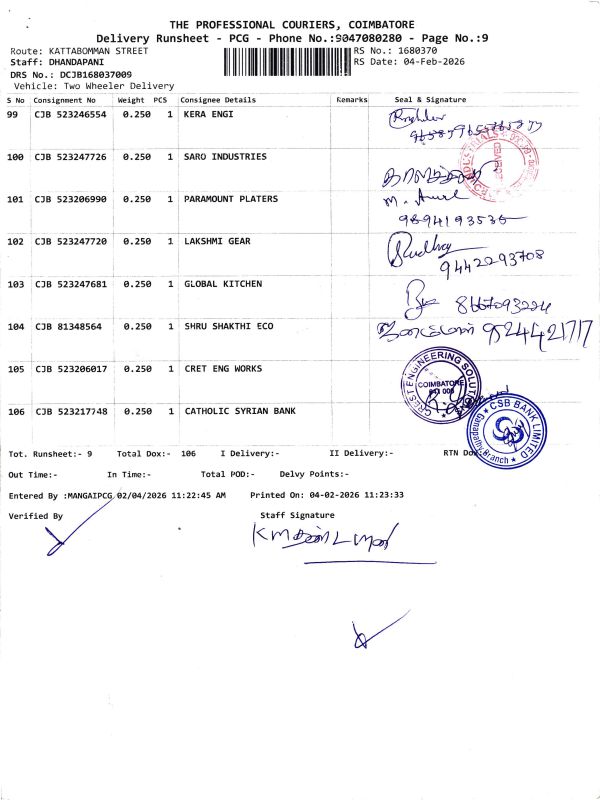 THE PROFESSIONAL COURIERS, COIMBATORE
Delivery Runsheet - PCG - Phone No.:9047080280 - Page No.:9
Route: KATTABOMMAN STREET RS No.: 1680370
Staff: DHANDAPANI RS Date: 04-Feb-2026
DRS No.: DCJB168037009
Vehicle: Two Wheeler Delivery
S No Consignment No Weight PCS Consignee Details Remarks Seal & Signature
99 CJB 523246554 0.250 1 KERA ENGI
100 CJB 523247726 0.250 1 SARO INDUSTRIES
101 CJB 523206990 0.250 1 PARAMOUNT PLATERS
9894193535
102 CJB 523247720 0.250 1 LAKSHMI GEAR
9442293708
103 CJB 523247681 0.250 1 GLOBAL KITCHEN
104 CJB 81348564 0.250 1 SHRU SHAKTHI ECO 9244421717
105 CJB 523206017 0.250 1 CRET ENG WORKS
CREST ENGINEERING SOLUTIONS COIMBATORE
106 CJB 523217748 0.250 1 CATHOLIC SYRIAN BANK
CSB BANK LIMITED Ganapathy Branch
Tot. Runsheet:- 9 Total Dox:- 106 I Delivery:- II Delivery:- RTN Dox:-
Out Time:- In Time:- Total POD:- Delvy Points:-
Entered By :MANGAIPCG 02/04/2026 11:22:45 AM Printed On: 04-02-2026 11:23:33
Verified By Staff Signature